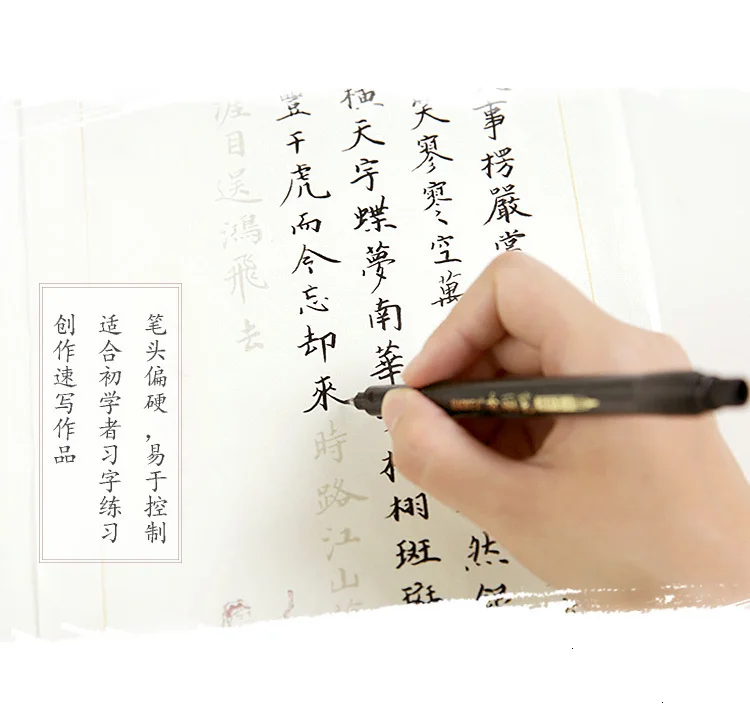 事楞嚴堂
然
笑寥寥寒空萬
天宇蝶夢南華
栩斑斑
豈干虎而今忘却來
時路江山
涯目送鴻飛去
笔头偏硬，易于控制
适合初学者习字练习
创作速写作品